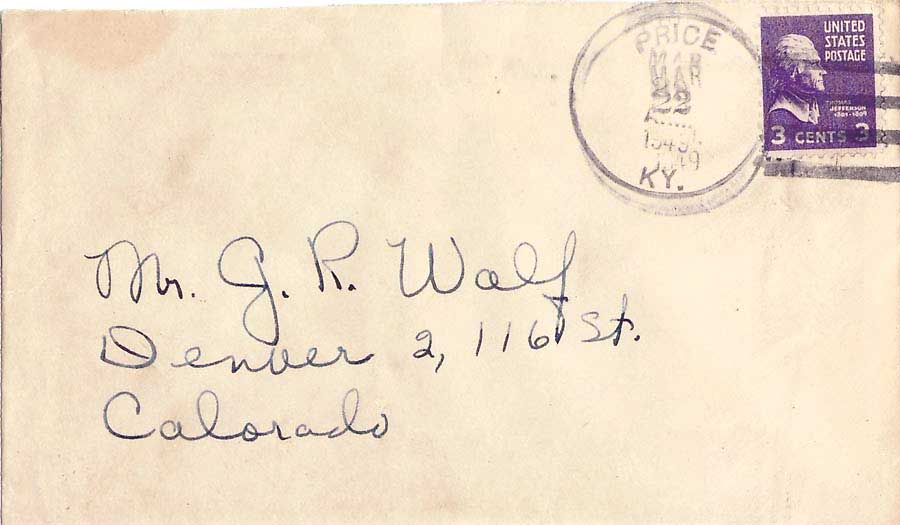 PRICE
MAR
22
1949
KY.
UNITED
STATES
POSTAGE
THOMAS
JEFFERSON
1801-1809
3 CENTS 3
Mr. G. R. Walf
Denver 2, 116 St.
Calorado